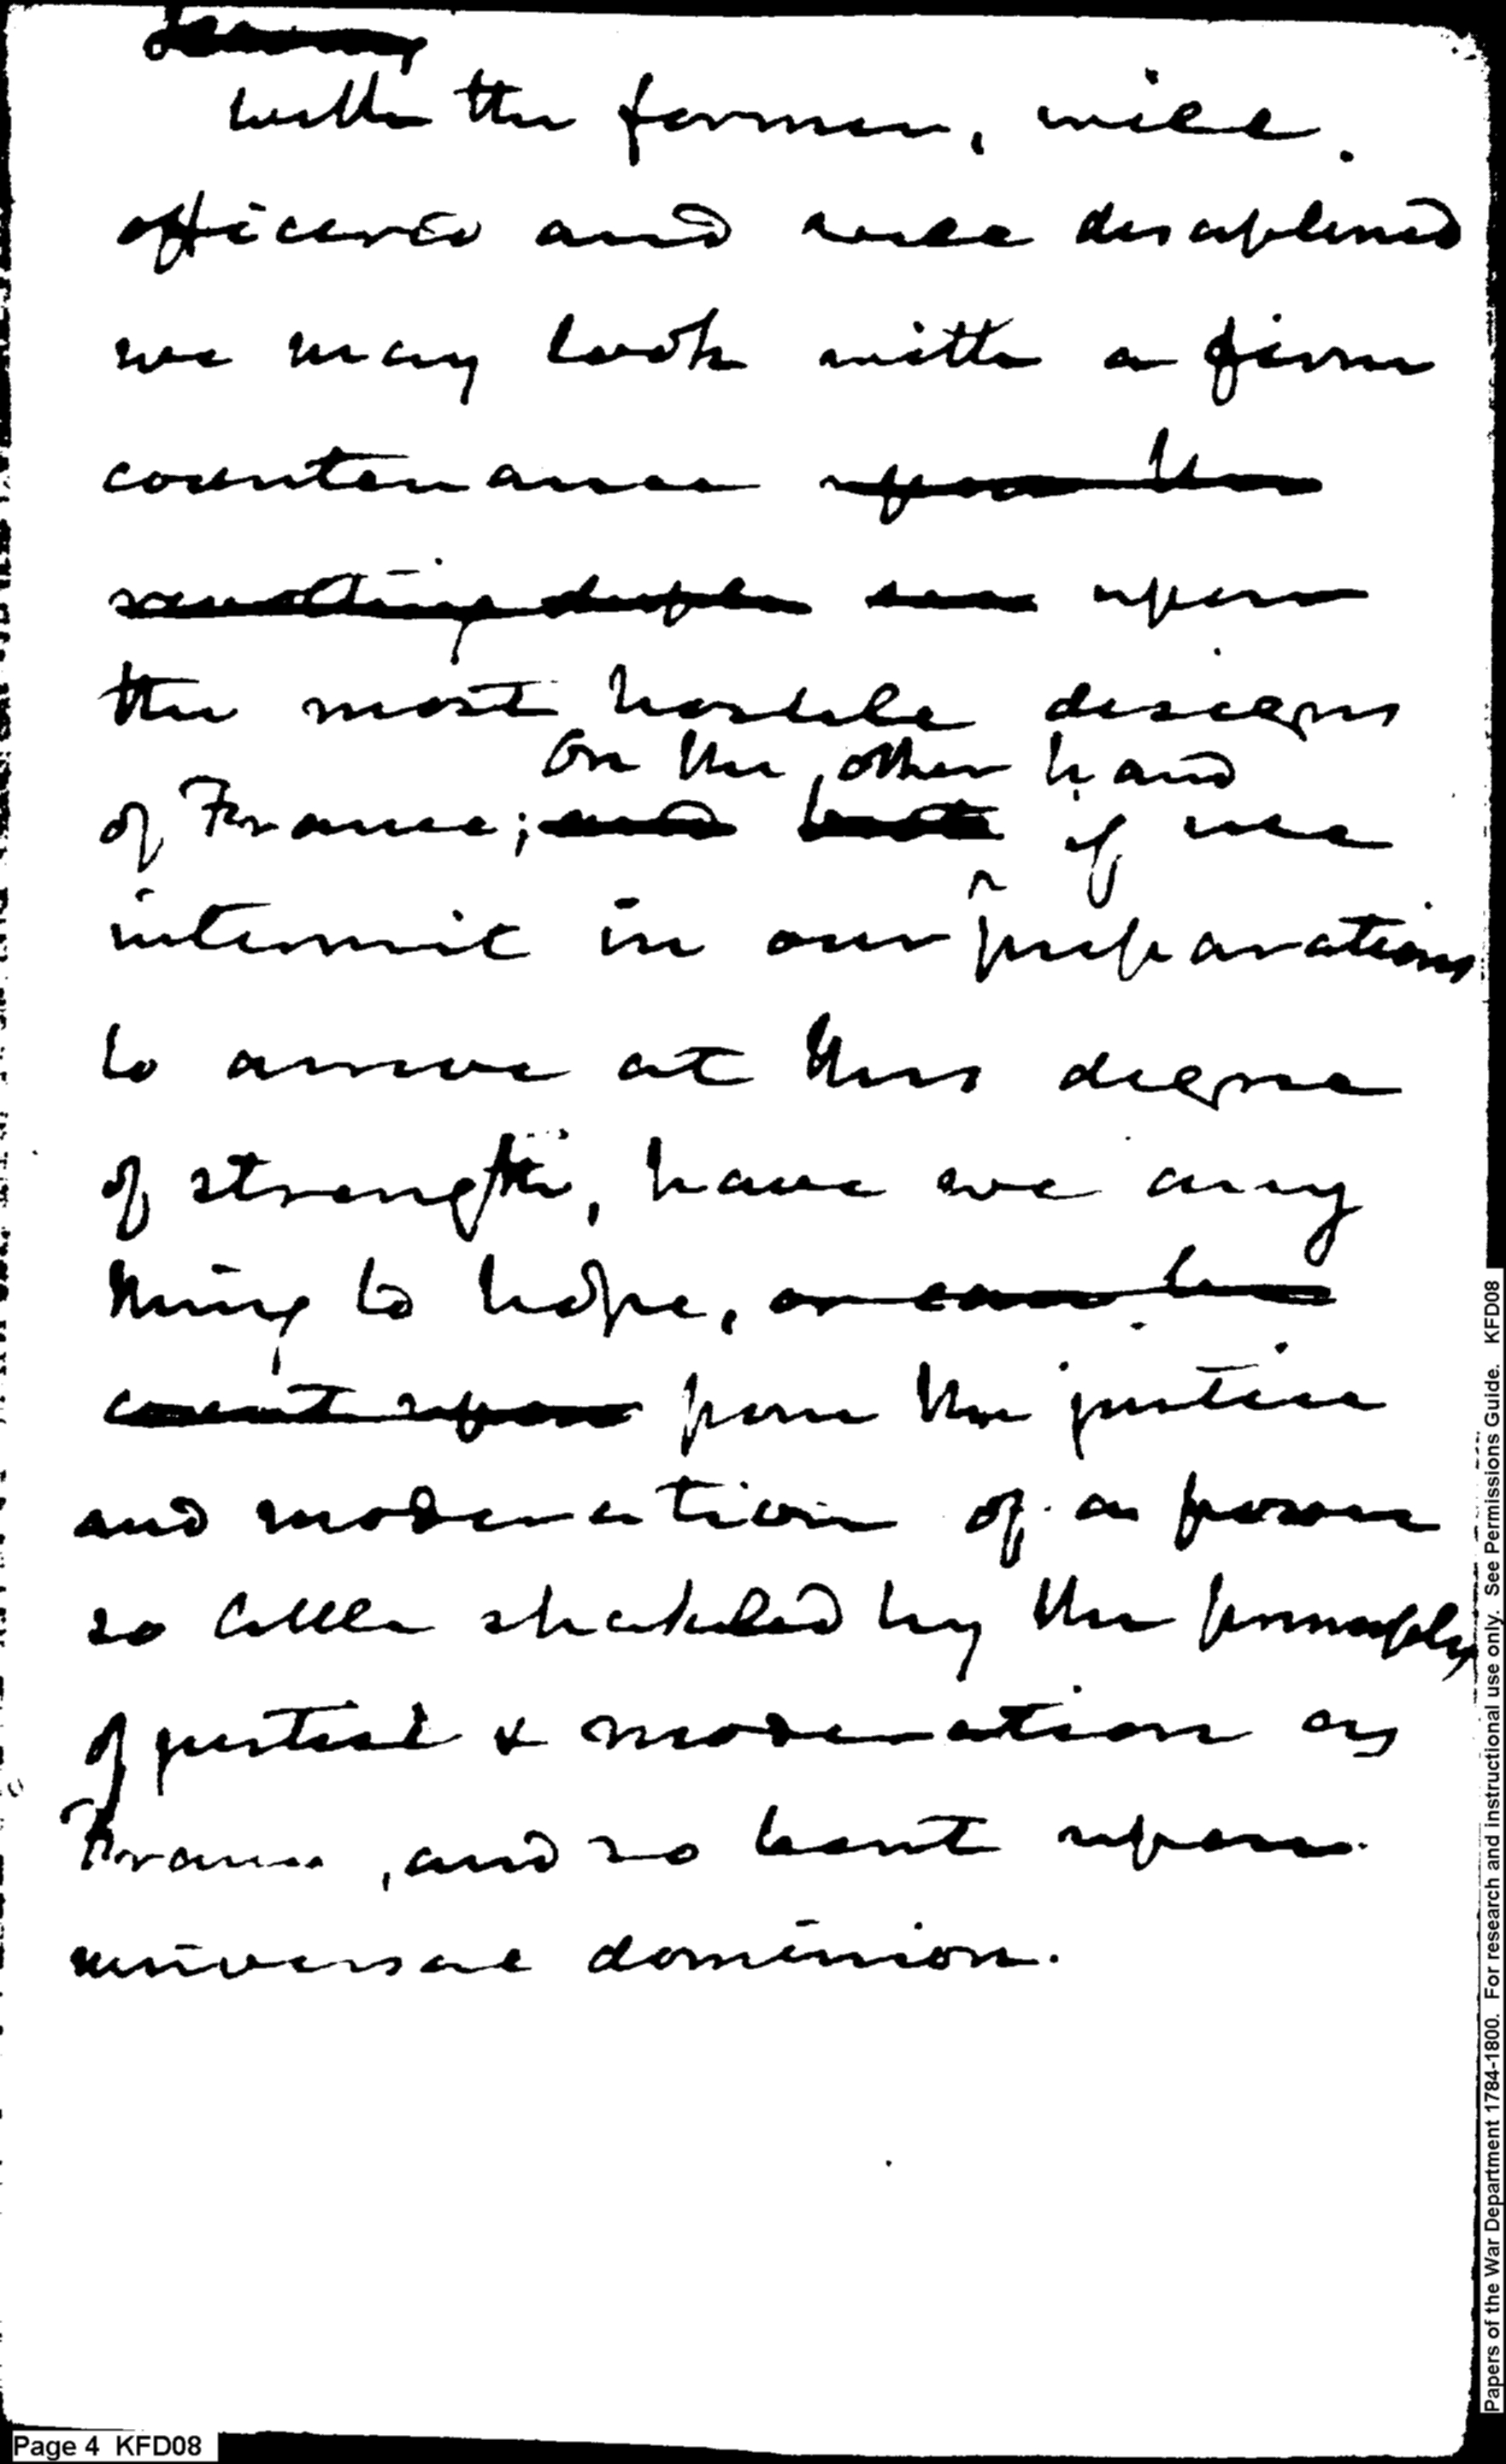 with the former, well
officered and well disciplined
we may look with a firm
countenance upon the
upon
the most hostile designs
On the other hand
of France; and but if we
intermit in our preparations
to arrive at this degree
of strength, have we any
thing to hope, or can we
count upon from the justice
and moderation of a power
so little shakled by the principles
of justice & moderation as
France, and so bent upon
universal dominion.
Page 4 KFD08
Papers of the War Department 1784-1800. For research and instructional use only. See Permissions Guide. KFD08